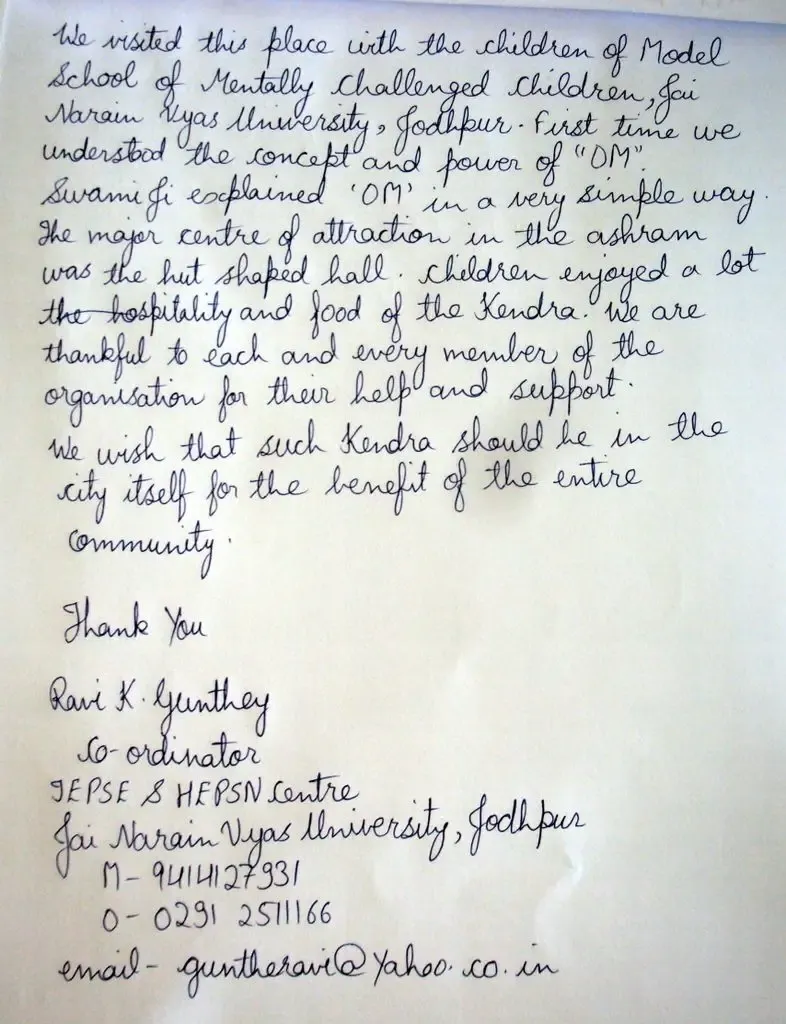 We visited this place with the children of Model
School of Mentally Challenged Children, Jai
Narain Vyas University, Jodhpur. First time we
understood the concept and power of "OM".
Swami Ji explained 'OM' in a very simple way.
The major centre of attraction in the ashram
was the hut shaped hall. Children enjoyed a lot
the hospitality and food of the Kendra. We are
thankful to each and every member of the
organisation for their help and support.
We wish that such Kendra should be in the
city itself for the benefit of the entire
community.
Thank You
Ravi K. Gunthey
Co-ordinator
TEPSE & HEPSN Centre
Jai Narain Vyas University, Jodhpur
M - 9414127931
O - 0291 2511166
email - guntheravi@yahoo.co.in